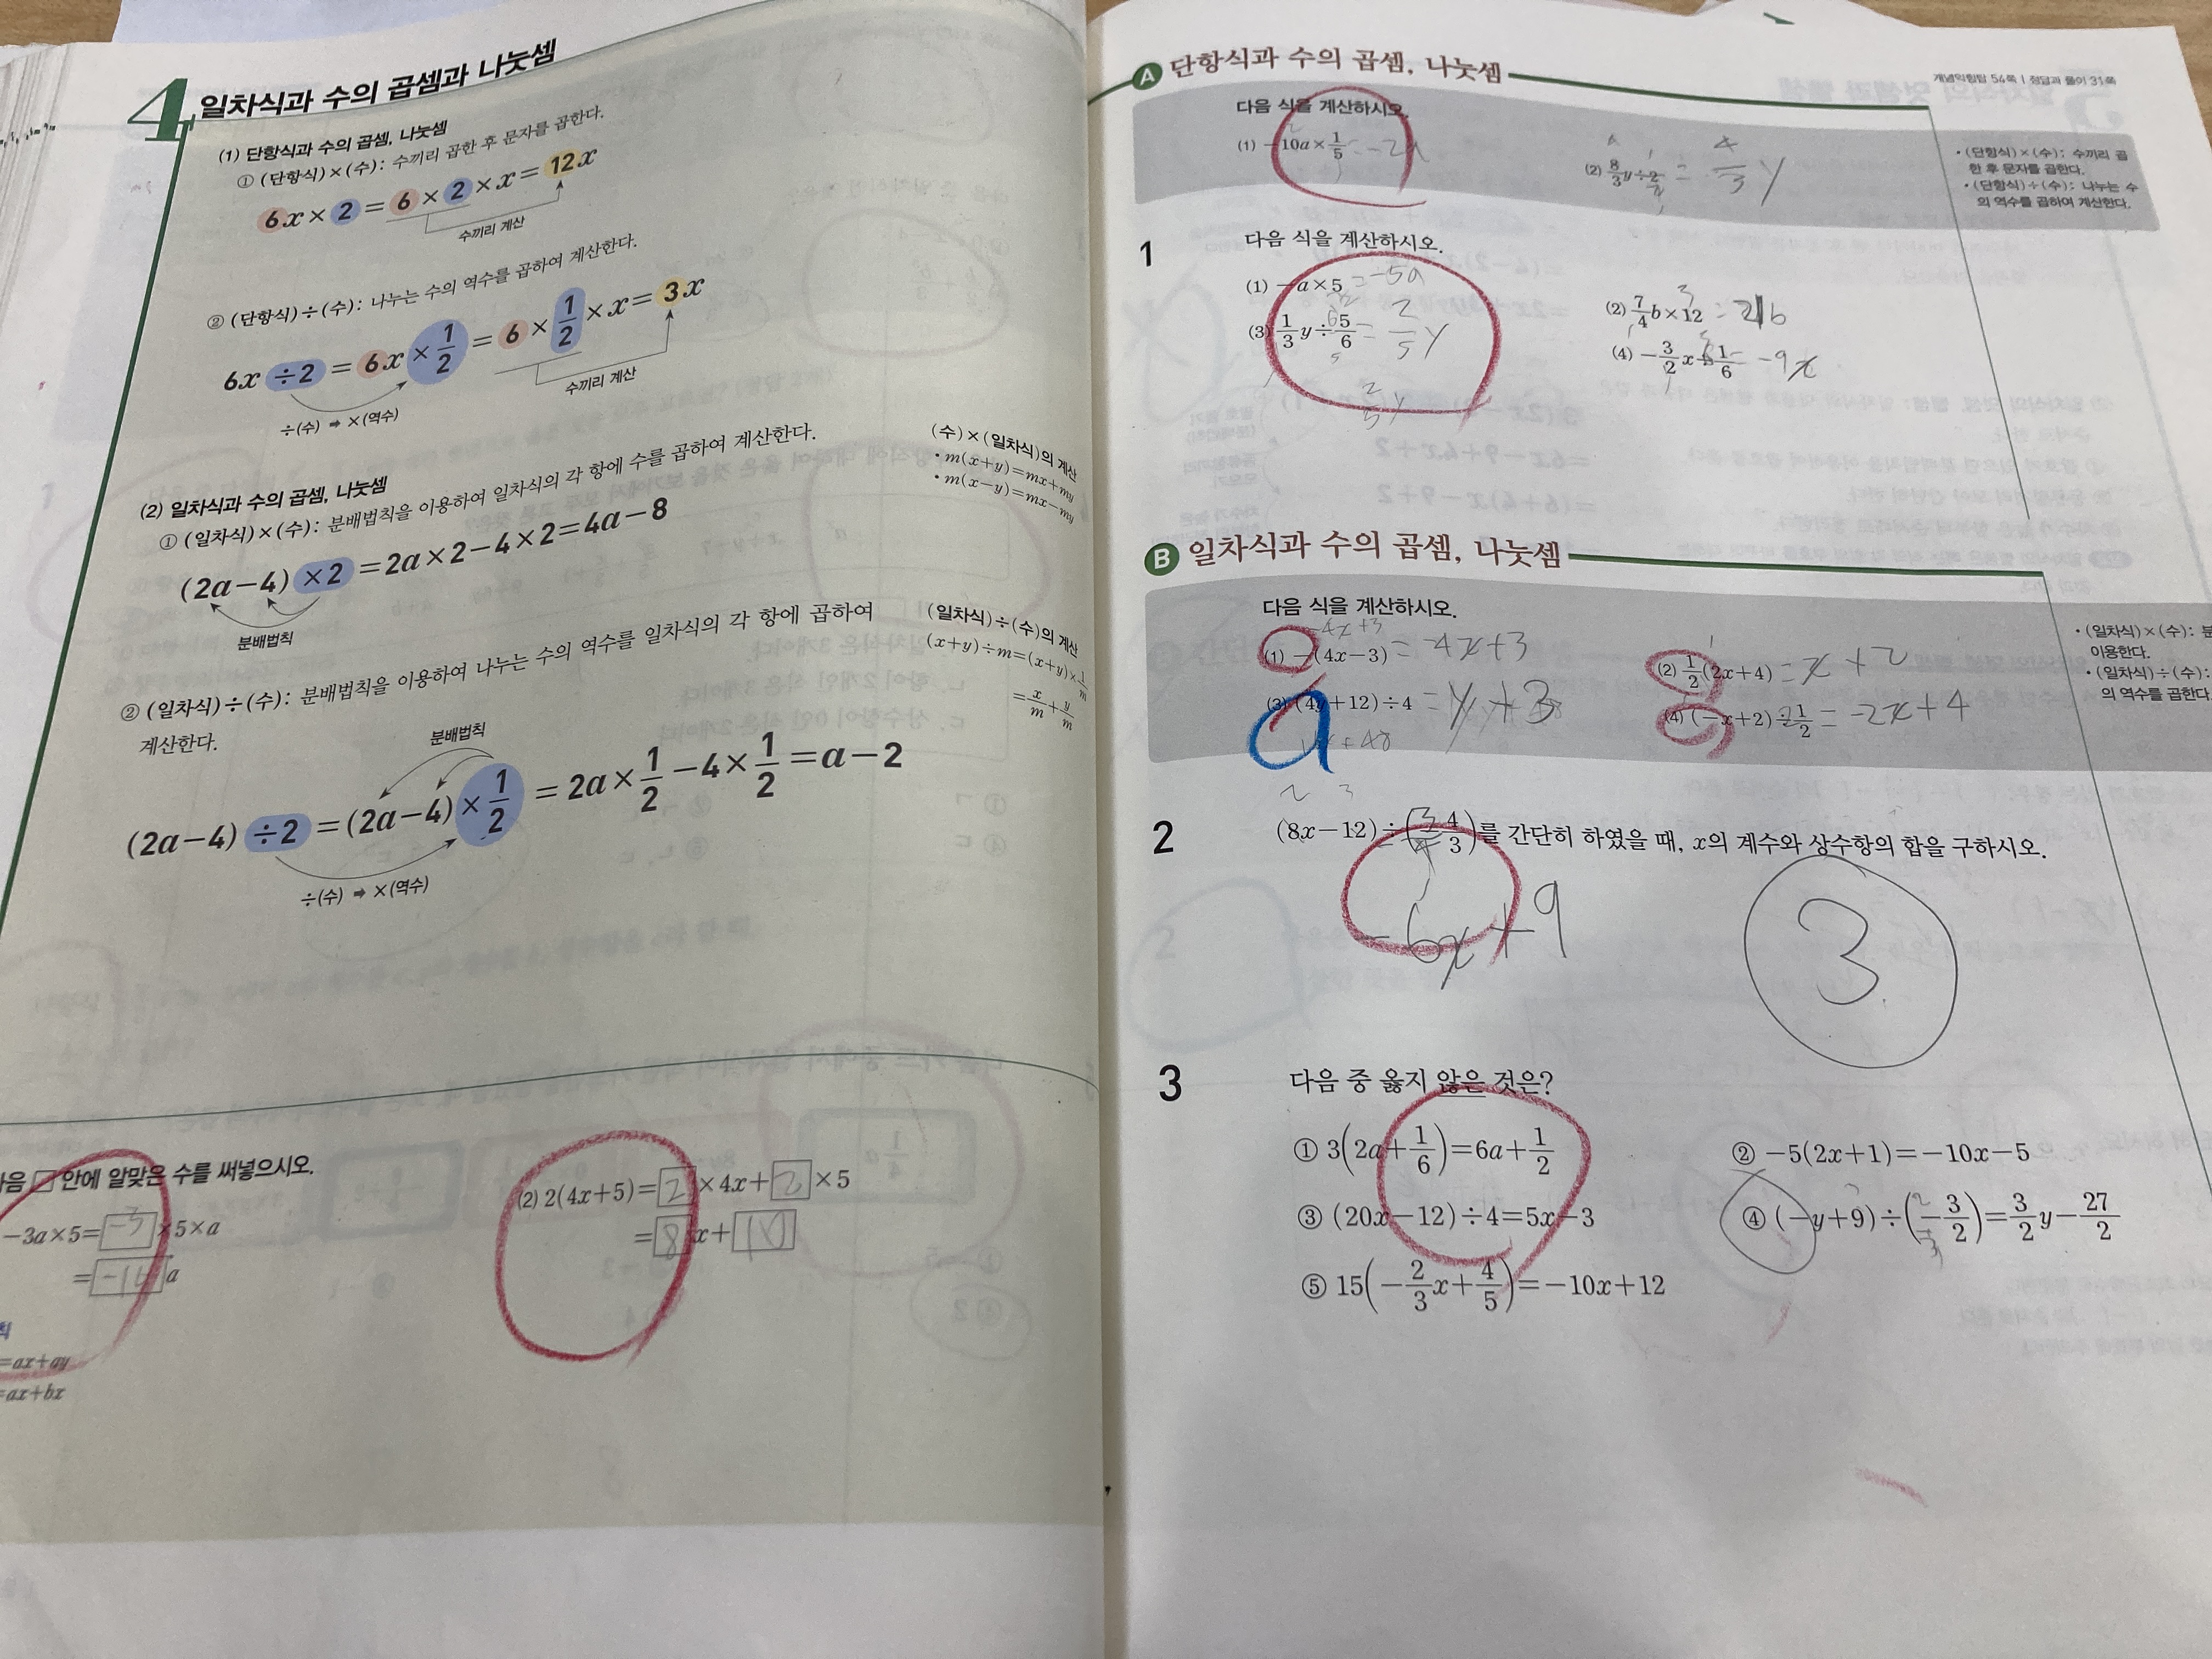 4 일차식과 수의 곱셈과 나눗셈
(1) 단항식과 수의 곱셈, 나눗셈
① (단항식)×(수): 수끼리 곱한 후 문자를 곱한다.
6x×2=6×2×x=12x
수끼리 계산
② (단항식)÷(수): 나누는 수의 역수를 곱하여 계산한다.
6x÷2=6x×1/2=6×1/2×x=3x
÷(수) ➡ ×(역수)
수끼리 계산
(2) 일차식과 수의 곱셈, 나눗셈
① (일차식)×(수): 분배법칙을 이용하여 일차식의 각 항에 수를 곱하여 계산한다.
(2a-4)×2=2a×2-4×2=4a-8
분배법칙
(수)×(일차식)의 계산
• m(x+y)=mx+my
• m(x-y)=mx-my
② (일차식)÷(수): 분배법칙을 이용하여 나누는 수의 역수를 일차식의 각 항에 곱하여
계산한다.
분배법칙
(2a-4)÷2=(2a-4)×1/2=2a×1/2-4×1/2=a-2
÷(수) ➡ ×(역수)
(일차식)÷(수)의 계산
(x+y)÷m=(x+y)×1/m
=x/m+y/m
안에 알맞은 수를 써넣으시오.
-3a×5=-3×5×a
=-15a
(2) 2(4x+5)=2×4x+2×5
=8x+10
=ax+ay
=ax+bx
개념익힘탑 54쪽 | 정답과 풀이 31쪽
A 단항식과 수의 곱셈, 나눗셈
다음 식을 계산하시오.
(1) -10a×1/5=-2a
(2) 8/3y÷2=4/3y
• (단항식)×(수): 수끼리 곱
한 후 문자를 곱한다.
• (단항식)÷(수): 나누는 수
의 역수를 곱하여 계산한다.
1 다음 식을 계산하시오.
(1) -a×5=-5a
(2) 7/4b×12=21b
(3) 1/3y÷5/6=2/5y
2/5y
(4) -3/2x÷1/6=-9x
B 일차식과 수의 곱셈, 나눗셈
다음 식을 계산하시오.
-4x+3
(1) -(4x-3)=-4x+3
(2) 1/2(2x+4)=x+2
(3) (4y+12)÷4=y+3
(4) (-x+2)÷1/2=-2x+4
• (일차식)×(수): 분
이용한다.
• (일차식)÷(수):
의 역수를 곱한다.
2 (8x-12)÷(-4/3)를 간단히 하였을 때, x의 계수와 상수항의 합을 구하시오.
-6x+9
3
3 다음 중 옳지 않은 것은?
① 3(2a+1/6)=6a+1/2
② -5(2x+1)=-10x-5
③ (20x-12)÷4=5x-3
④ (-y+9)÷(-3/2)=3/2y-27/2
⑤ 15(-2/3x+4/5)=-10x+12